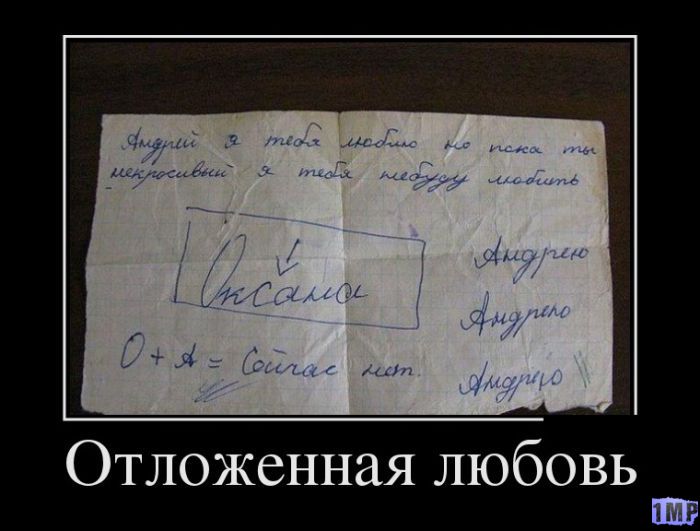 Андрей я тебя люблю но пока ты
некросивый я тебя небуду любить
Оксана
Андрею
Андрею
О + А = Сейчас нет.
Андрею
Отложенная любовь
1MP